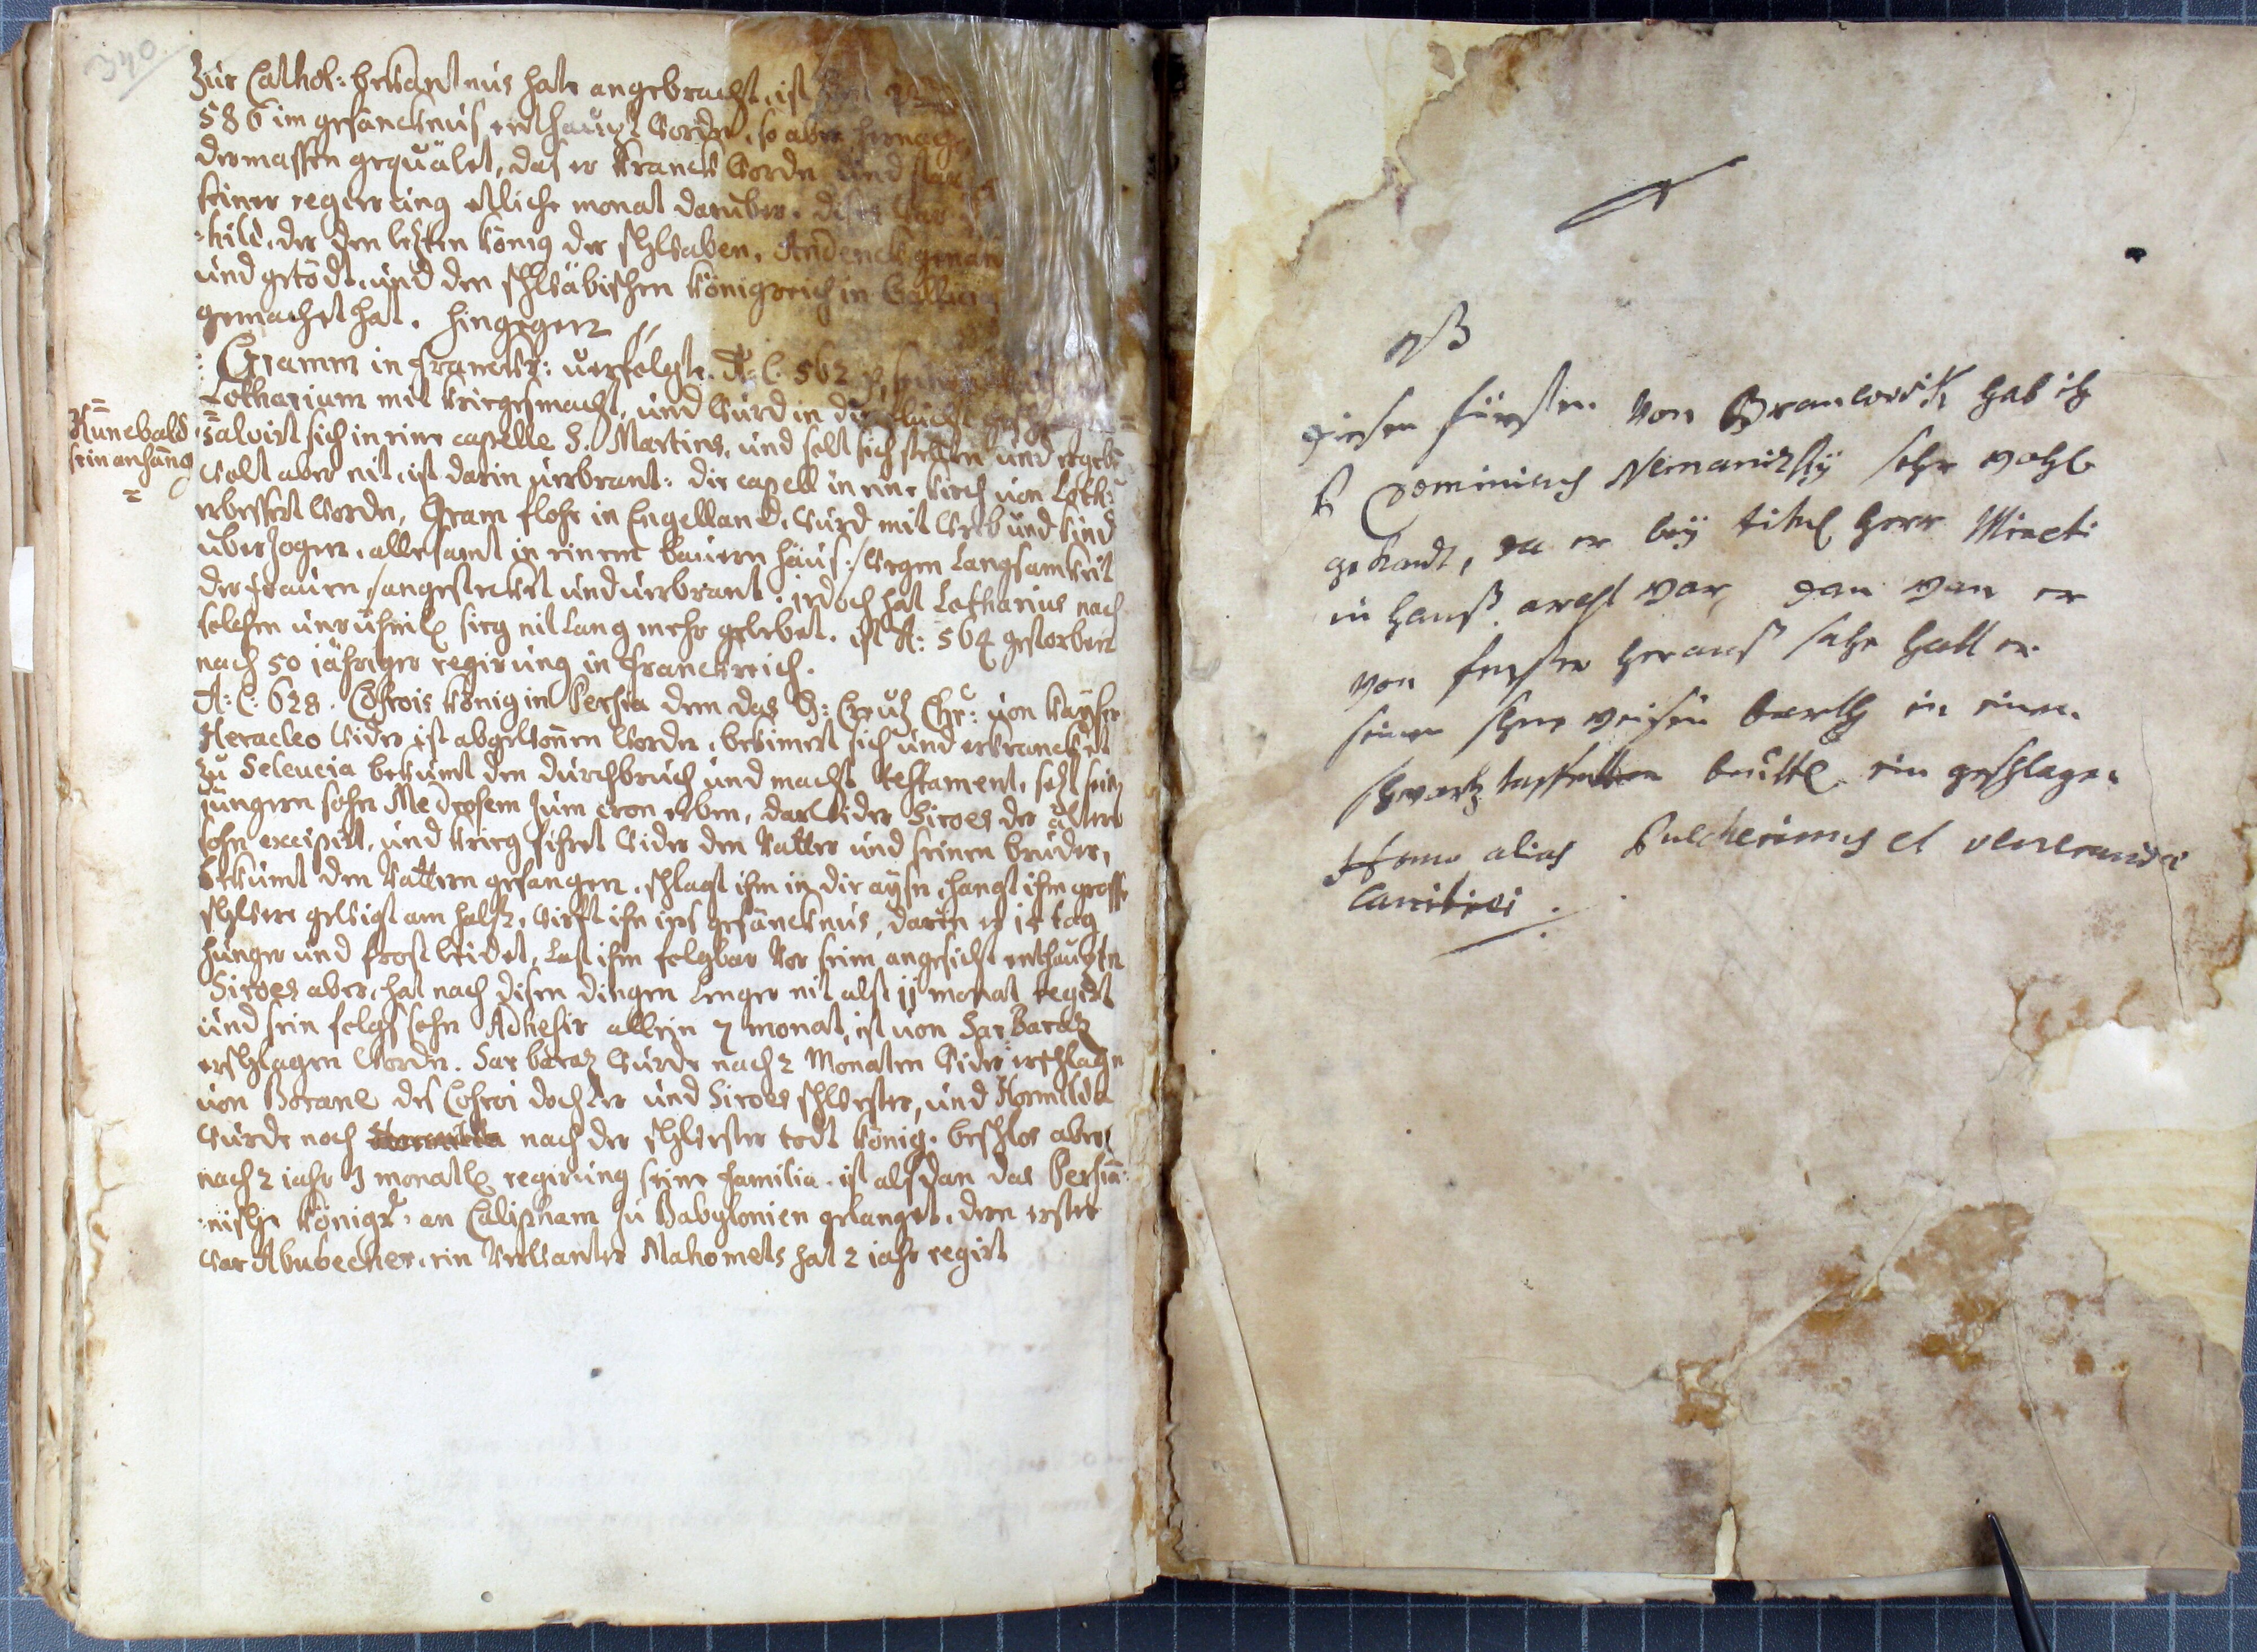 340.
Zur Cathol: bekantnus hate angebracht, ist
586 im gefäncknus enthaupt worden, so aber hernach
dermassen gequälet, das er kranck worden und
seiner regirung etliche monat darüber. dises war
-hild, der den letzten König der schwaben, Andeneck genan
und getödt, und den schwäbischen Königreich in Gallicia
gemacht hat. hingegen
: Gramm in franckr: verfolgte. A: C. 562
Lotharium mit kriegsmacht, und wurd in die flucht
Kunebald
sein anhang
salvirt sich in eine capelle S. Martins, und solt sich stellen und ergeb
wolt aber nit, ist darin verbrant: die capell in eine kirch von Loth:
verbessert worden, Gram flohe in Engelland, wurd mit weib und kind
uberzogen, allesamt in einem bauern haus: / wegen langsamkeit
der frauen / angesteckt und verbrant. jedoch hat Lotharius nach
solchem sieg nit lang mehr gelebet. ist A: 564 gestorben
nach 50 jähriger regirung in franckreich.
A: C: 628. Cosrois König in Persia dem das H: Creutz Chr: von Kayser
Heracleo wider ist abgewonnen worden, bekümert sich und erkrancket
zu Seleucia bekumt den durchbruch und macht testament, setzt sein
jüngern sohn Medrosem zum cron erben, darwider Siroes der ältere
sohn excipirt, und krieg führet wider den Vatter und seinen bruder,
bekumt den Vattern gefangen, schlagt ihm in die aysen, hangt ihm grosse
schwere gewigt am hals, wirft ihn ins gefäncknus, darin er 15 tag
hunger und frost leidet, last ihm folgbar vor seim angesicht enthaupten
Siroes aber, hat nach disen dingen lenger nit als 11 monat regirt
und sein sohn Adhesir allein 7 monat, ist von Sar Baraz
erschlagen worden. Sar baraz wurde nach 2 Monaten wider erschlagen
von Borane des Cosroi dochter und Siroes schwester, und Hormisda
wurde noch nach der schwester todt König. beschlos aber
nach 2 jahr 3 monatl regirung seine familia. ist alsdan das Persia
-nische Königr: an Calipham zu Babylonien gelanget, deren erster
war Abubecher, ein verwanter Mahomets hat 2 jahr regirt
NB
diesen fürsten von Braunweik hab ich
P Dominicus Nemanitzky sehr wohl
gekandt, da er bey titul herr Mineti
in hauß arest war, dan wan er
von fenster herauß sahe hatt er
seinen schne weisen barth in einen
schwartz taffetten beuttl ein geschlagen
Homo alias Pulcherimus et veneranda
Canitiei .